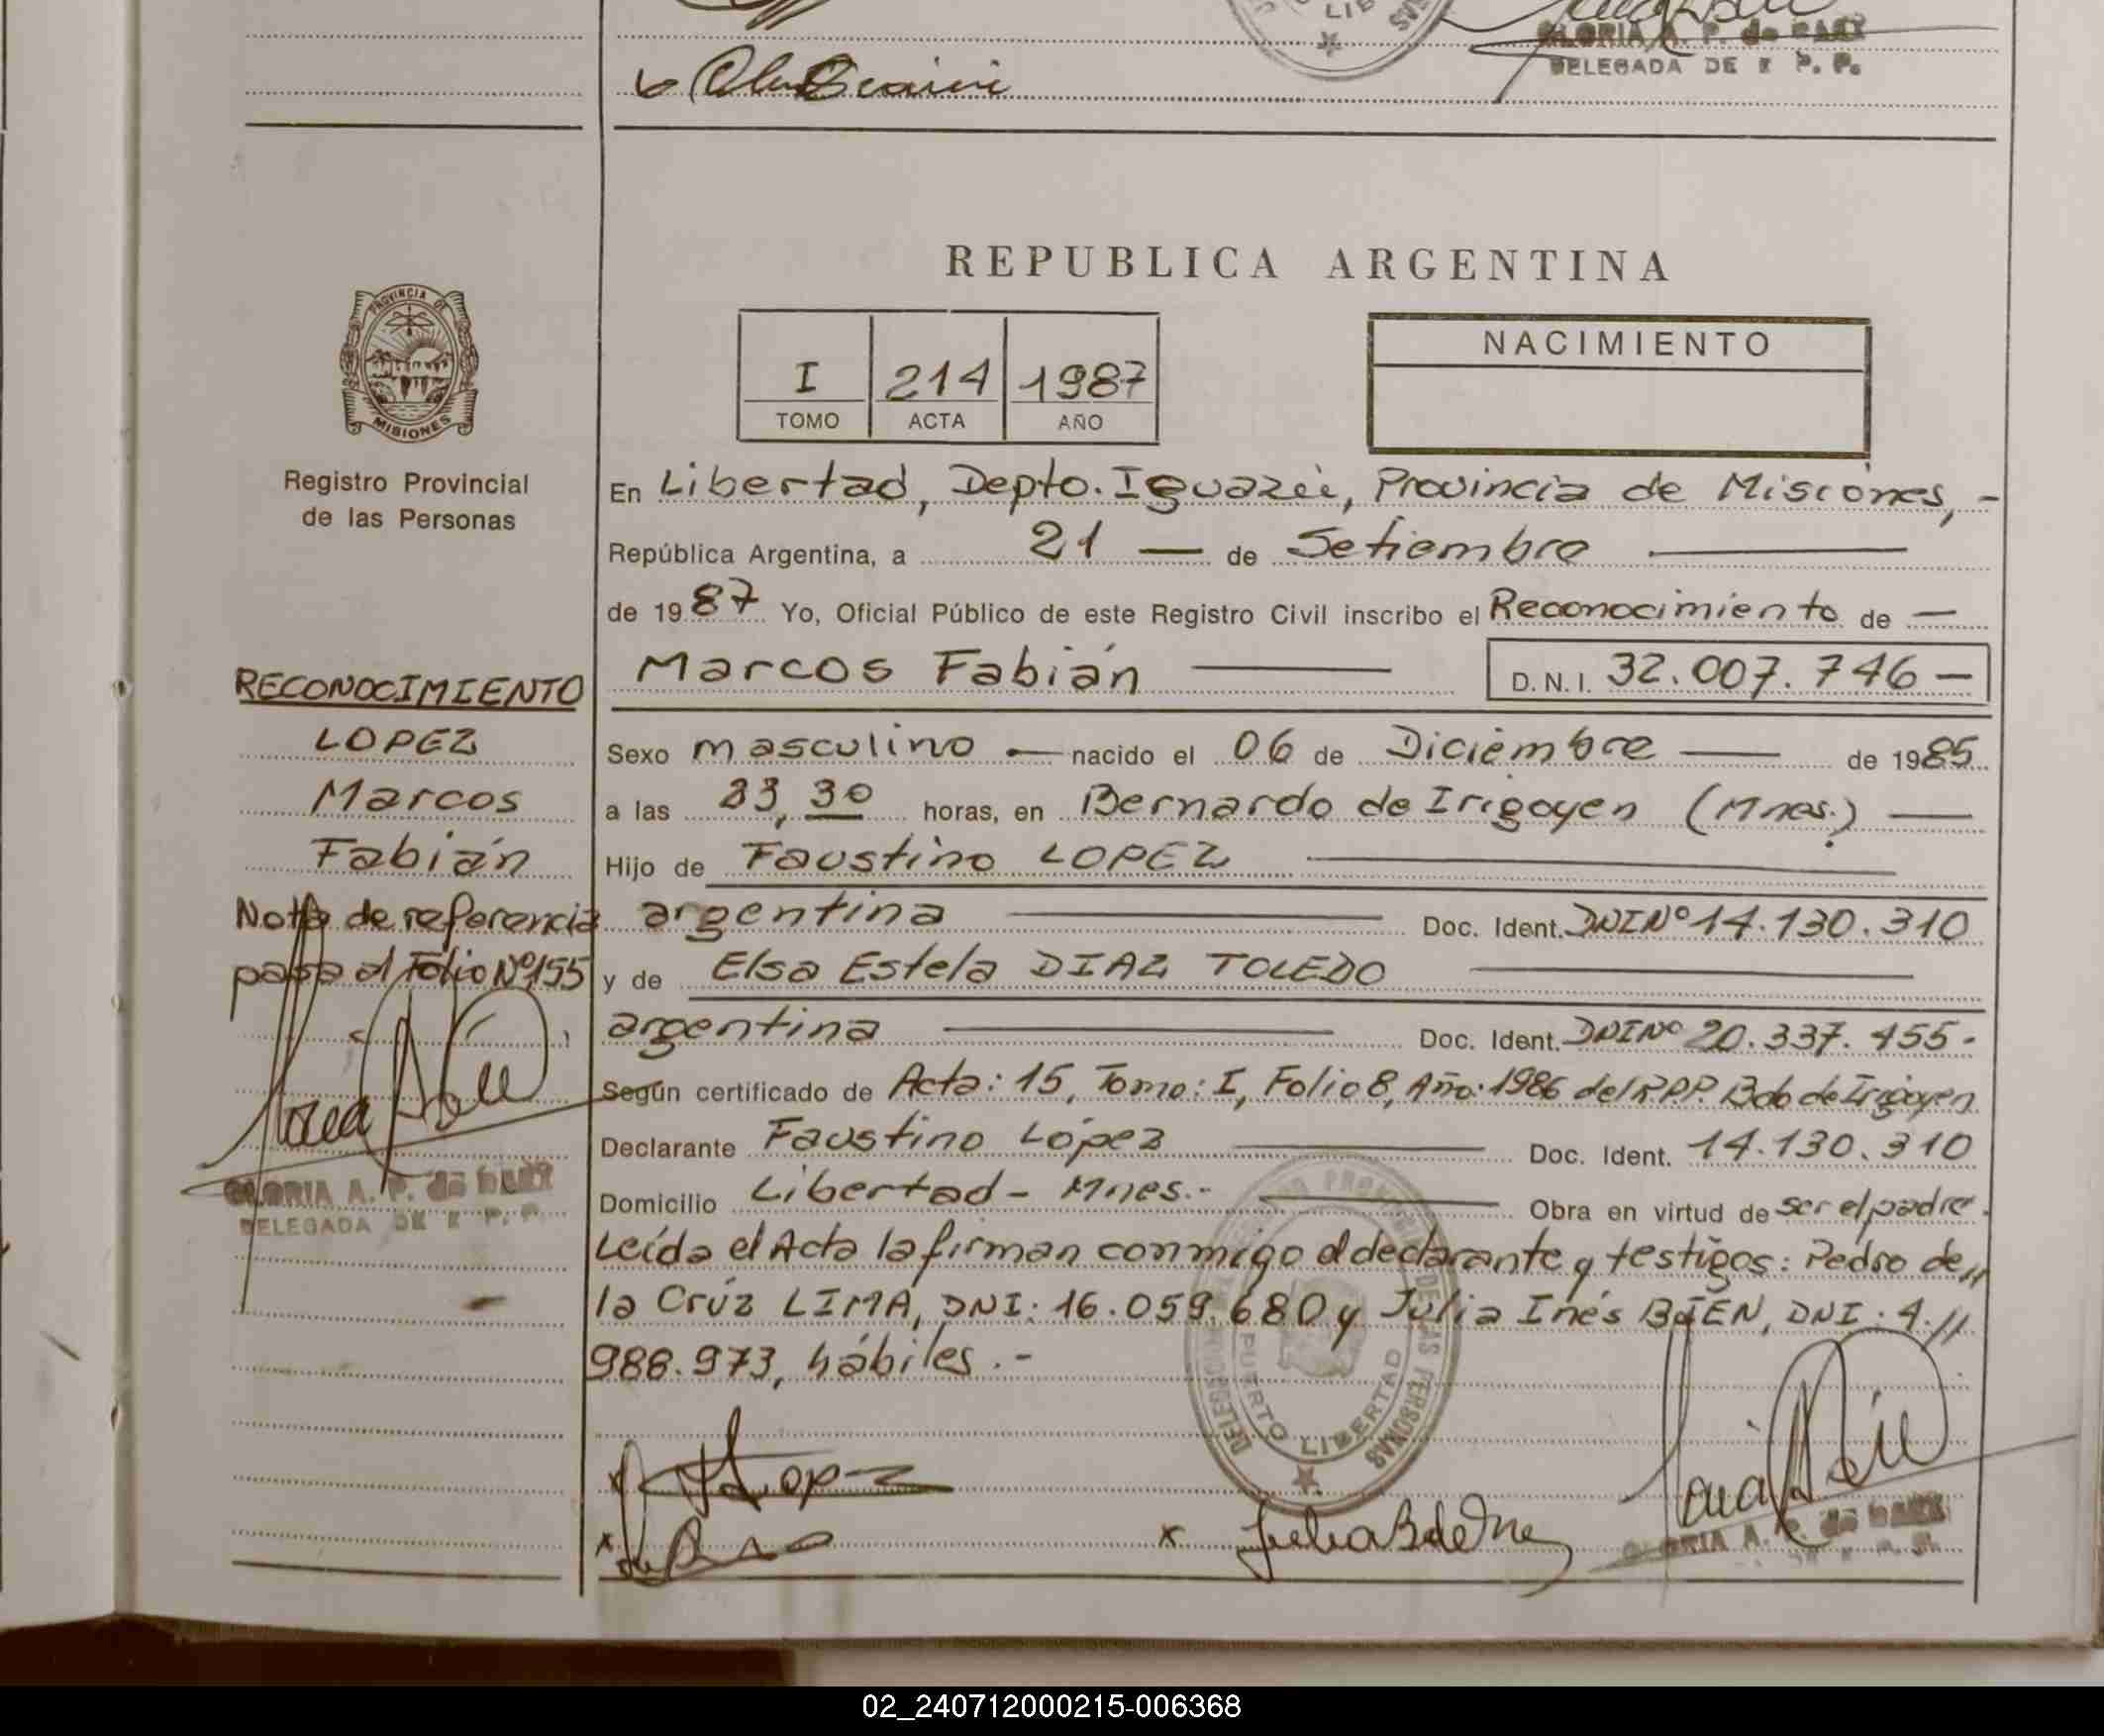 GLORIA A. P. de BAEZ
DELEGADA DE R P. P.
REPUBLICA ARGENTINA
PROVINCIA DE
MISIONES
Registro Provincial
de las Personas
I
TOMO
214
ACTA
1987
AÑO
NACIMIENTO
En Libertad, Depto. Iguazú, Provincia de Misiones, -
República Argentina, a 21 — de Setiembre —
de 1987 Yo, Oficial Público de este Registro Civil inscribo el Reconocimiento de —
Marcos Fabián — D. N. I. 32.007.746 —
Sexo masculino — nacido el 06 de Diciembre — de 1985
a las 23,30 horas, en Bernardo de Irigoyen (Mnes.) —
Hijo de Faustino LOPEZ —
argentina — Doc. Ident. DNI Nº 14.130.310
y de Elsa Estela DIAZ TOLEDO —
argentina — Doc. Ident. DNI Nº 20.337.455-
Según certificado de Acta: 15, Tomo: I, Folio 8, Año: 1986 del R.P.P. Bdo de Irigoyen
Declarante Faustino López — Doc. Ident. 14.130.310
Domicilio Libertad - Mnes.- — Obra en virtud de ser el padre.
Leída el Acta la firman conmigo el declarante y testigos: Pedro de//
la Crúz LIMA, DNI: 16.059.680 y Julia Inés BAEN, DNI: 4.//
988.973, hábiles.-
RECONOCIMIENTO
LOPEZ
Marcos
Fabián
Nota de referencia
pasa al Folio Nº 155
GLORIA A. P. de BAEZ
DELEGADA DE R P. P.
PUERTO LIBERTAD
Lopez
GLORIA A. P. de BAEZ
02_240712000215-006368